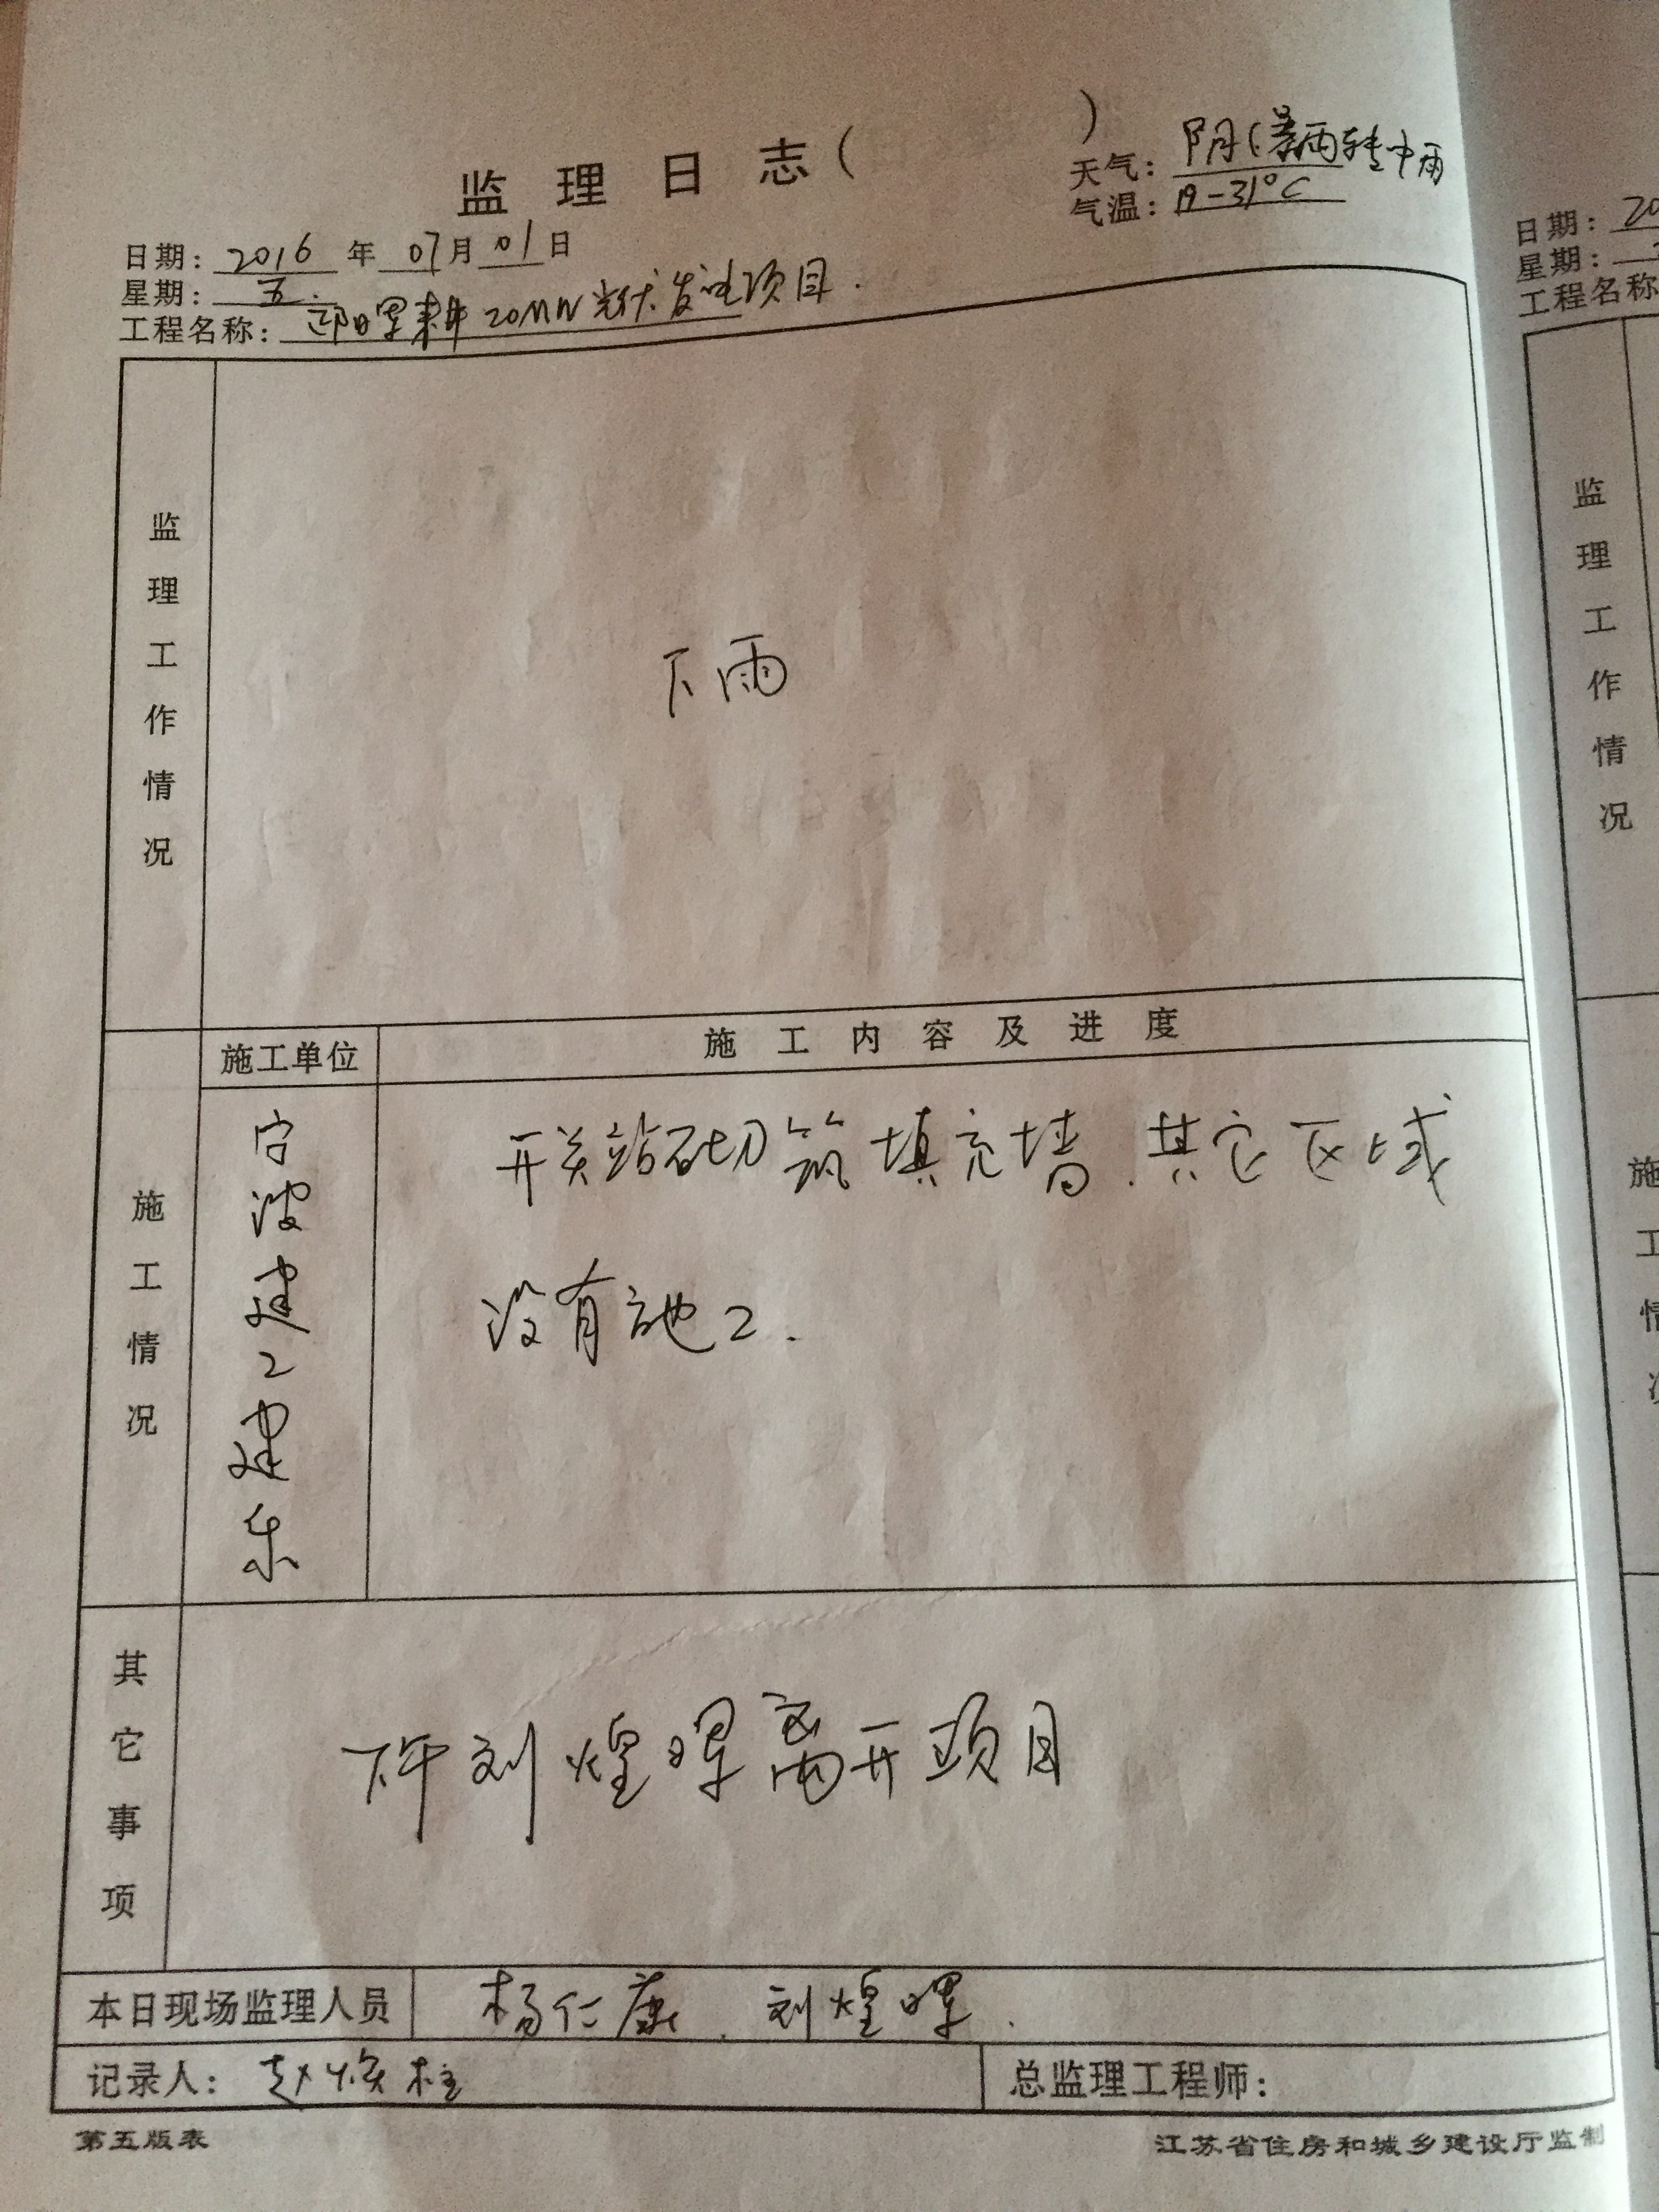 监理日志（ ）
天气：阴（暴雨转中雨
气温：19-31°C
日期：2016年07月01日
星期：五.
工程名称：20MW光伏发电项目.
监理工作情况
下雨
施工情况
施工单位
施工内容及进度
宁波建工建乐
开关站砌筑填充墙.其它区域
没有施工.
其它事项
下午刘煌晖离开项目
本日现场监理人员
杨仁康、刘煌晖.
记录人：赵焕柱
总监理工程师：
第五版表
江苏省住房和城乡建设厅监制
日期：20
星期：
工程名称
监理工作情况
施工情况